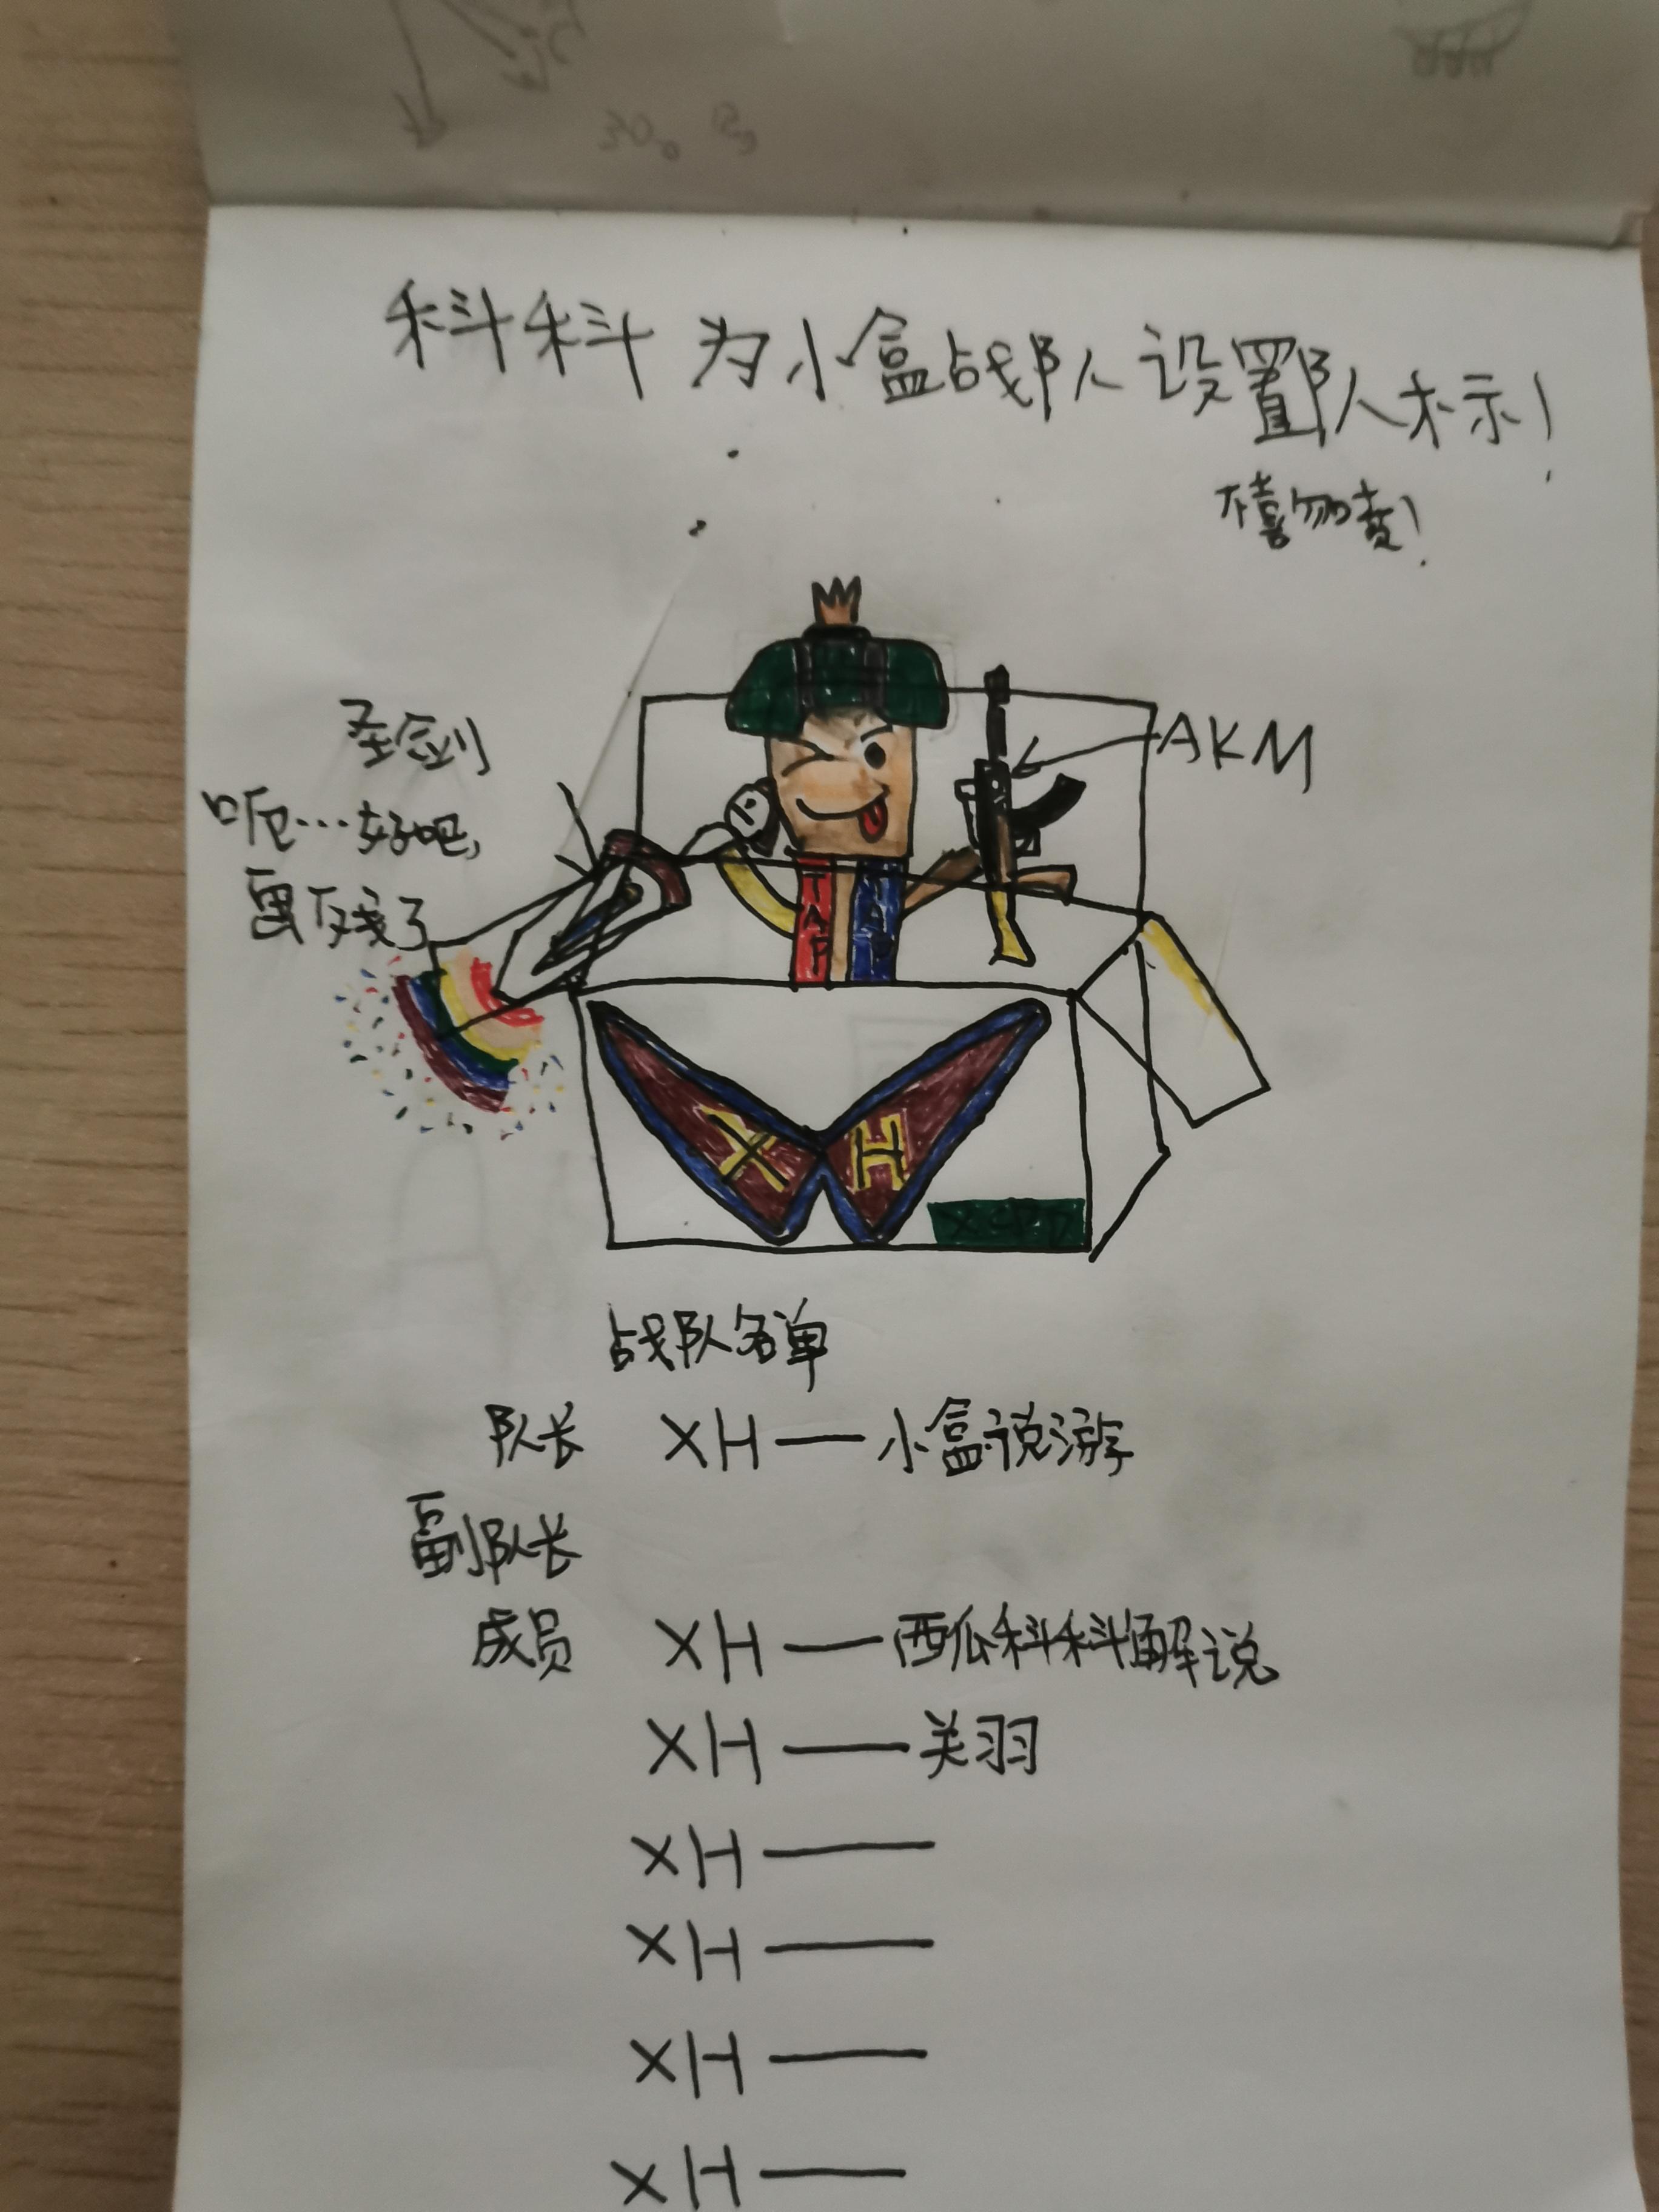 科科为小盒战队设置队标示!
不喜勿责!
圣剑
呃…好吧,
画残了
AKM
TAP
X H
战队名单
队长 XH — 小盒说游
副队长
成员 XH — 西瓜科科解说
XH — 关羽
XH —
XH —
XH —
XH —